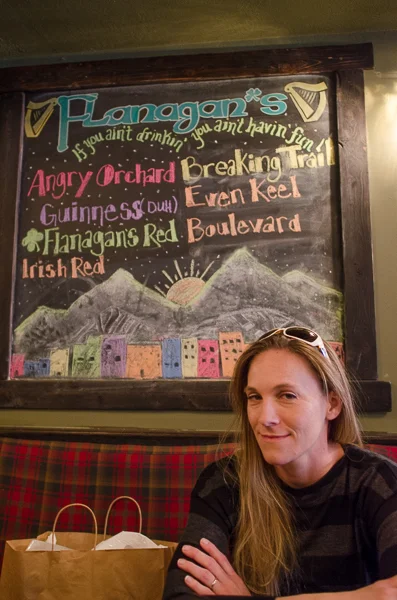 Flanagan's
If you ain't drinkin' you ain't havin' fun!
Angry Orchard
Guinness (DUH)
Flanagan's Red
Irish Red
Breaking Trail
Even Keel
Boulevard